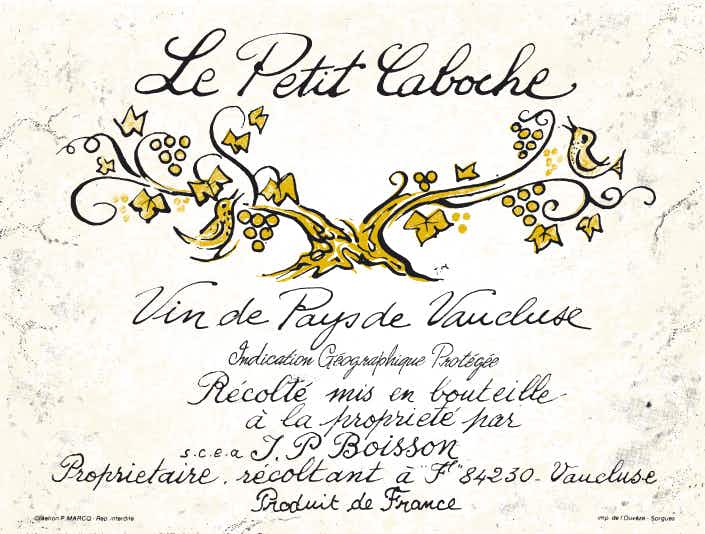 Le Petit Caboche
Vin de Pays de Vaucluse
Indication Géographique Protégée
Récolté mis en bouteille
à la proprieté par
s.c.e.a J.P Boisson
Proprietaire. récoltant à "F" 84230 - Vaucluse
Produit de France
Création P. MARCO - Rep. interdite
Imp. de l'Ouvèze - Sorgues